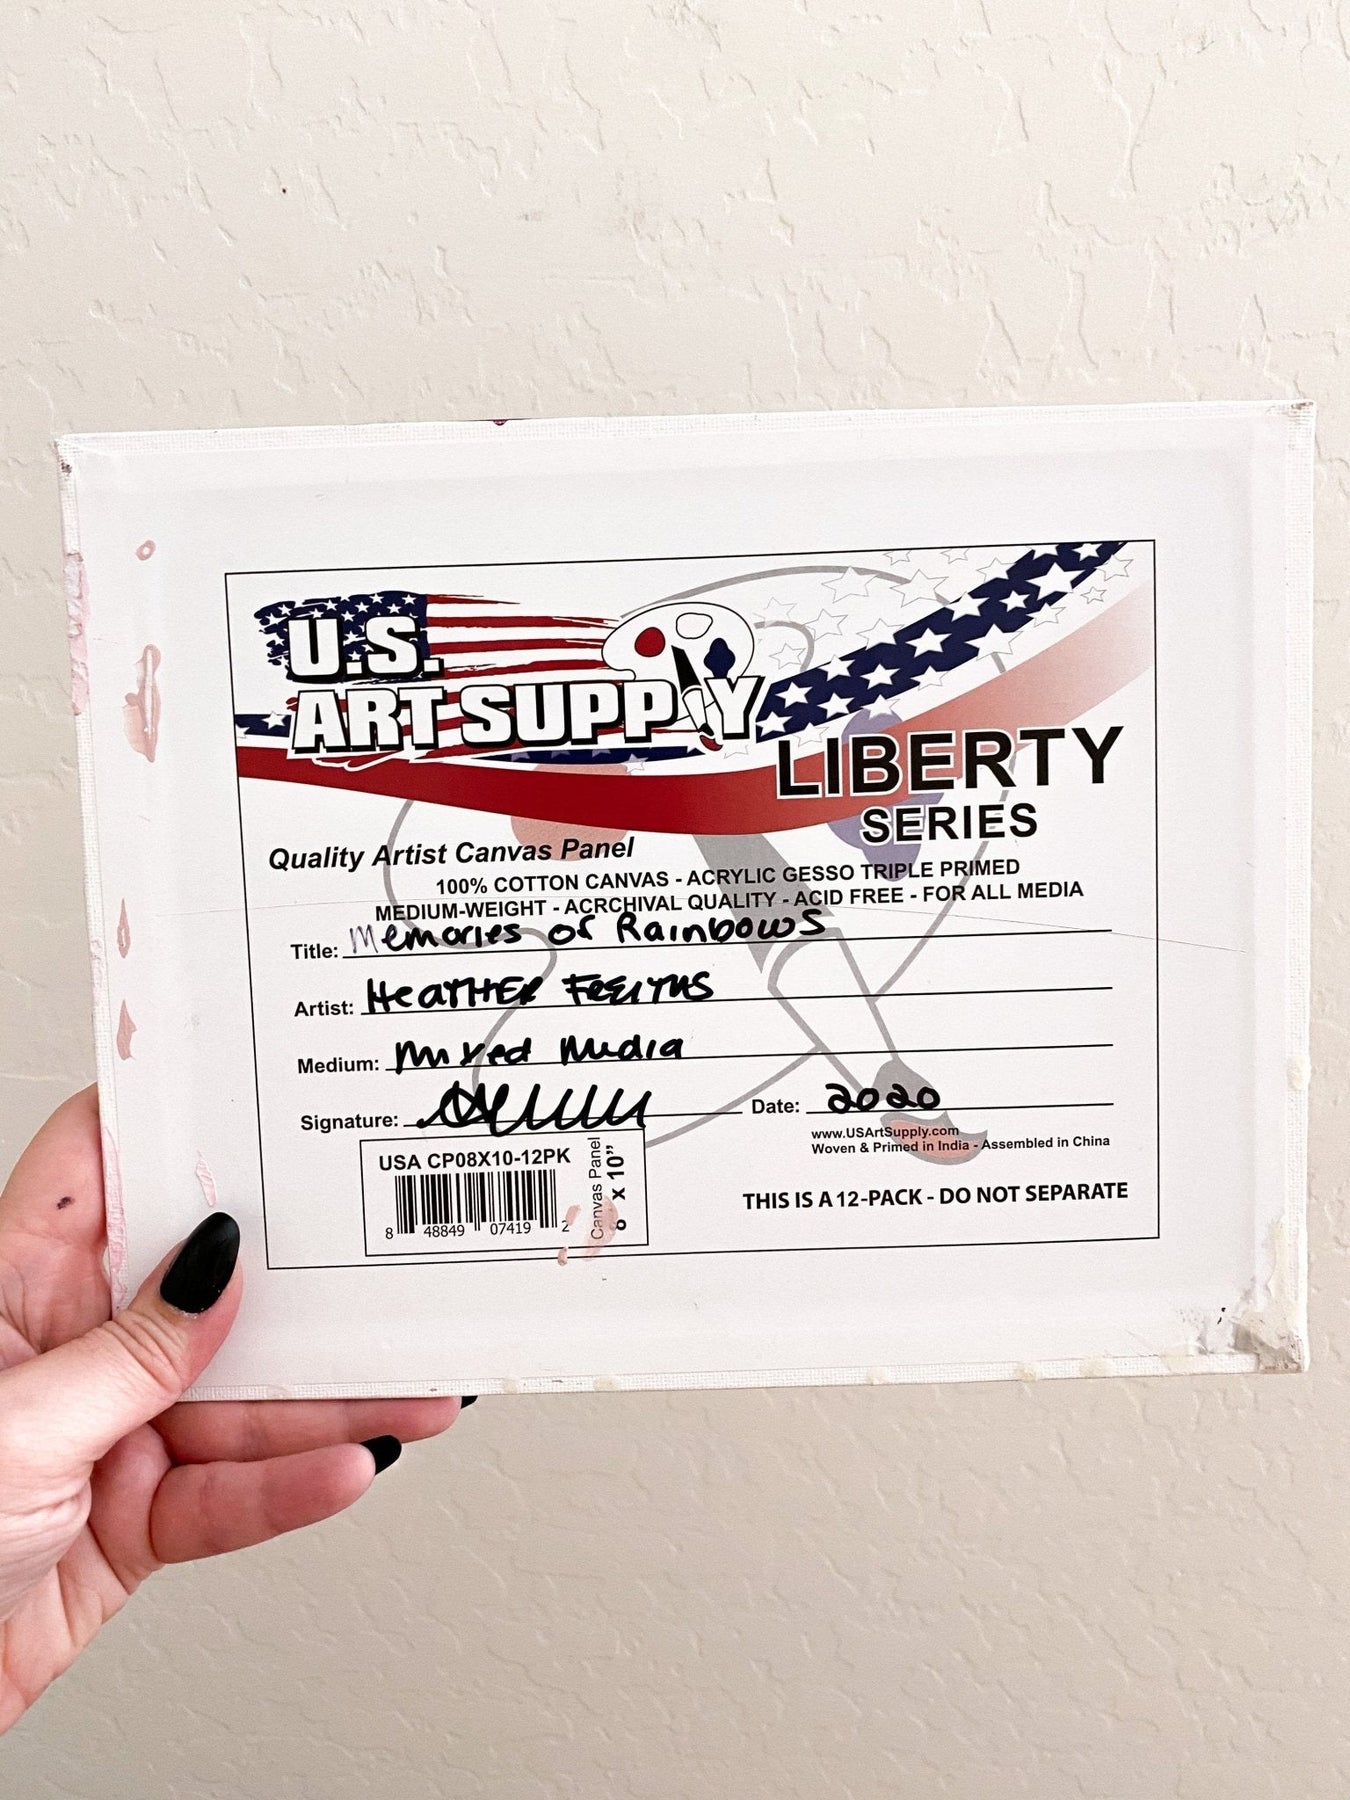 U.S.
ART SUPPLY
LIBERTY
SERIES
Quality Artist Canvas Panel
100% COTTON CANVAS - ACRYLIC GESSO TRIPLE PRIMED
MEDIUM-WEIGHT - ACRCHIVAL QUALITY - ACID FREE - FOR ALL MEDIA
Title: Memories of Rainbows
Artist: Heather Freitas
Medium: Mixed Media
Signature:
Date: 2020
www.USArtSupply.com
Woven & Primed in India - Assembled in China
USA CP08X10-12PK
8 48849 07419 2
Canvas Panel
8 x 10"
THIS IS A 12-PACK - DO NOT SEPARATE